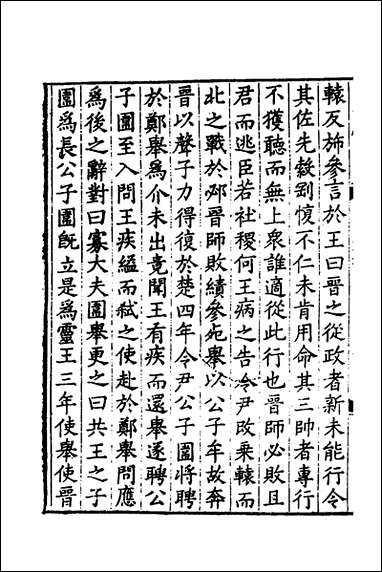 轅反斾參言於王曰晉之從政者新未能行令
其佐先縠剛愎不仁未肯用命其三帥者專行
不獲聽而無上衆誰適從此行也晉師必敗且
君而逃臣若社稷何王病之告令尹改乗轅而
北之戰於邲晉師敗績參死舉以公子牟故奔
晉以聲子力得復於楚四年令尹公子圍將聘
於鄭舉爲介未出竟聞王有疾而還舉遂聘公
子圍至入問王疾縊而弑之使赴於鄭舉問應
爲後之辭對曰寡大夫圍舉更之曰共王之子
圍爲長公子圍旣立是爲靈王三年使舉使晉